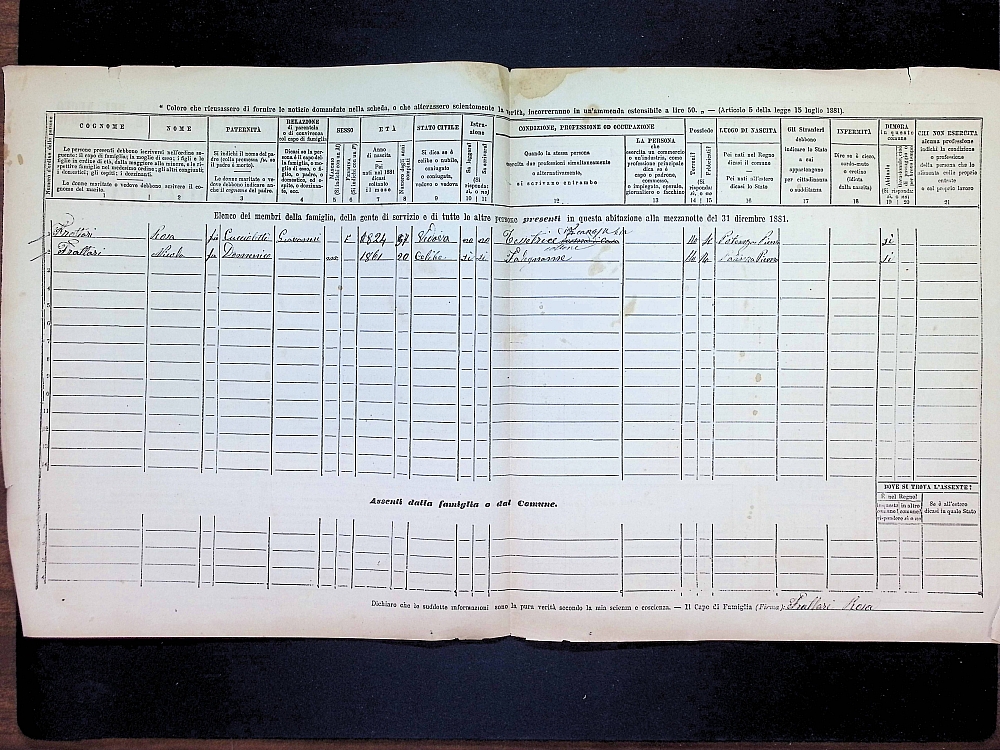 * Coloro che ricusassero di fornire le notizie domandate nella scheda, o che alterassero scientemente la verità, incorreranno in un'ammenda ostensibile a lire 50. „ — (Articolo 5 della legge 15 luglio 1881).
COGNOME
NOME
Le persone presenti debbono iscriversi nell'ordine seguente: il capo di famiglia; la moglie di esso; i figli e le figlie in ordine di età, dalla maggiore alla minore, e le rispettive famiglie nel medesimo ordine; gli altri congiunti; i domestici; gli ospiti; i dozzinanti.
Le donne maritate o vedove debbono scrivere il cognome del marito.
PATERNITÀ
Si indichi il nome del padre (colla premessa fu, se il padre è morto).
Le donne maritate o vedove debbono indicare anche il cognome del padre.
RELAZIONE
di parentela
o di convivenza
col capo di famiglia
SESSO
ETÀ
Anno
di nascita
Pei
nati nel 1881
dicasi
soltanto
il mese
STATO CIVILE
Si dica se è
celibe o nubile,
o coniugato,
o coniugata,
vedovo o vedova
Istruzione
CONDIZIONE, PROFESSIONE OD OCCUPAZIONE
Quando la stessa persona
esercita due professioni simultaneamente
o alternativamente,
si scrivano entrambe
LA PERSONA
che
esercita un commercio
o un'industria, come
professione principale
dica se è
capo o padrone,
commesso,
o impiegato, operaio,
giornaliero o facchino
Possiede
Terreni?
Fabbricati?
LUOGO DI NASCITA
Pei nati nel Regno
dicasi il comune
Pei nati all'estero
dicasi lo Stato
Gli Stranieri
debbono
indicare lo Stato
a cui
appartengono
per cittadinanza
o sudditanza
INFERMITÀ
Dire se è cieco,
sordo-muto
o cretino
(idiota
dalla nascita)
DIMORA
in questo
comune
CHI NON ESERCITA
alcuna professione
indichi la condizione
o professione
della persona che lo
alimenta
o col proprio lavoro
1 2 3 4 5 6 7 8 9 10 11 12 13 14 15 16 17 18 19 20 21
Elenco dei membri della famiglia, della gente di servizio e di tutte le altre persone presenti in questa abitazione alla mezzanotte del 31 dicembre 1881.
Frattari Rosa fu Cucciolotti F 1824 57 Vedova no no Tessitrice no si Potenza Picena si
Frattari Nicola fu Domenico 1861 20 Celibe si si Falegname Potenza Picena si
Assenti dalla famiglia o dal Comune.
DOVE SI TROVA L'ASSENTE?
È nel Regno?
Se è all'estero
dicasi in quale Stato
Dichiaro che le suddette informazioni sono la pura verità secondo la mia scienza e coscienza. — Il Capo di Famiglia (Firma): Frattari Rosa